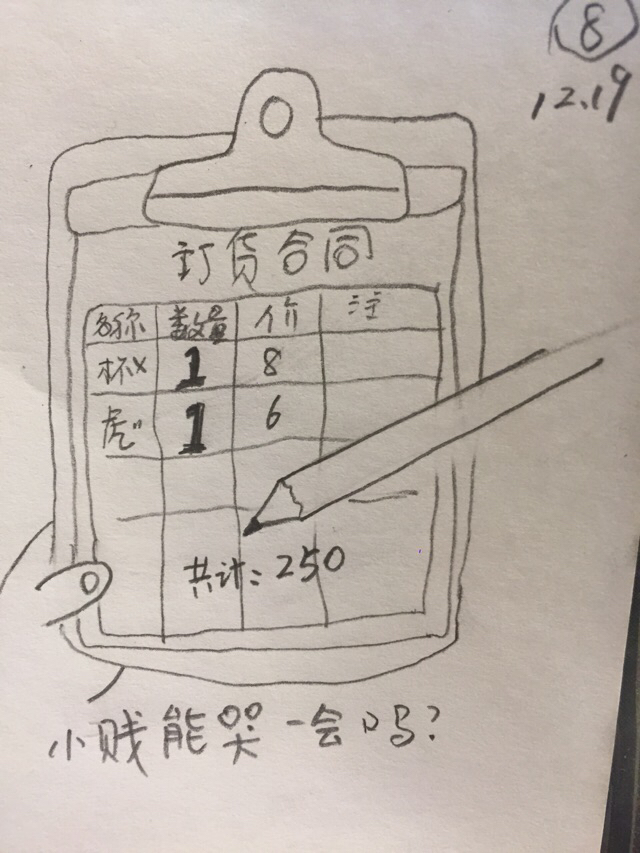 8
12.19
订货合同
名称 数量 价 注
杯x 1 8
虎" 1 6
共计：250
小贱能哭一会吗？